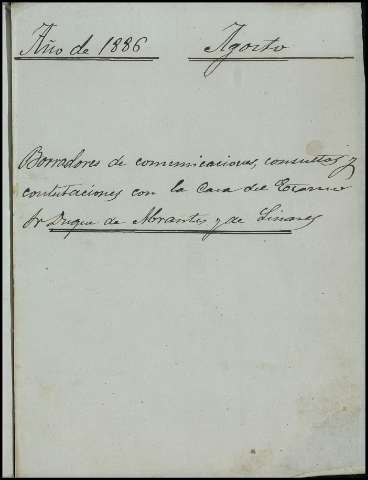 Año de 1886 Agosto
Borradores de comunicaciones, consultas y
contestaciones con la Casa del Excmo
Sr Duque de Abrantes y de Linares